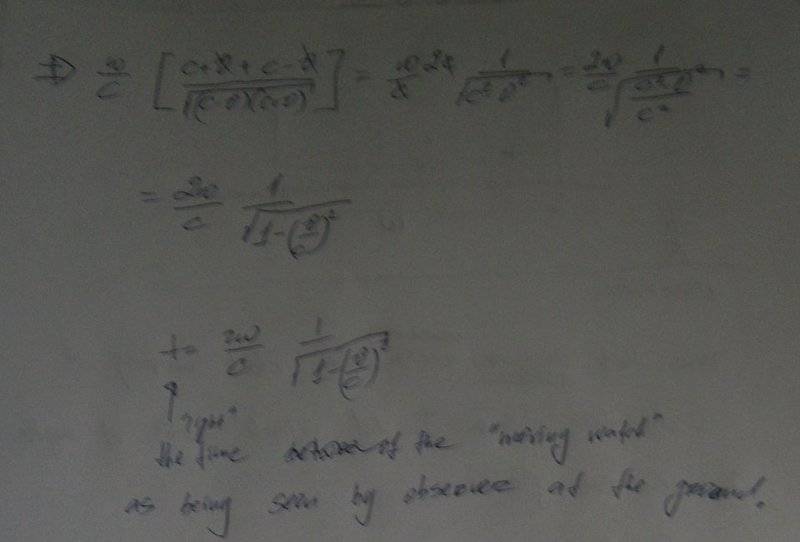 ⇒ w/c [ (c+v + c-v) / √((c-v)(c+v)) ] = w/c 2c 1/√(c²-v²) = 2w/c 1/√((c²-v²)/c²) =
= 2w/c 1/√(1-(v/c)²)
t = 2w/c 1/√(1-(v/c)²)
the time of the "moving watch"
as being seen by observer at the ground.